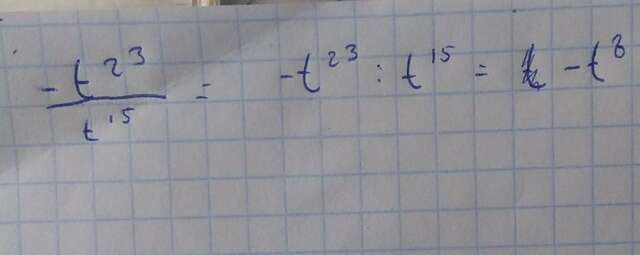 -t²³/t¹⁵ = -t²³ : t¹⁵ = -t⁸